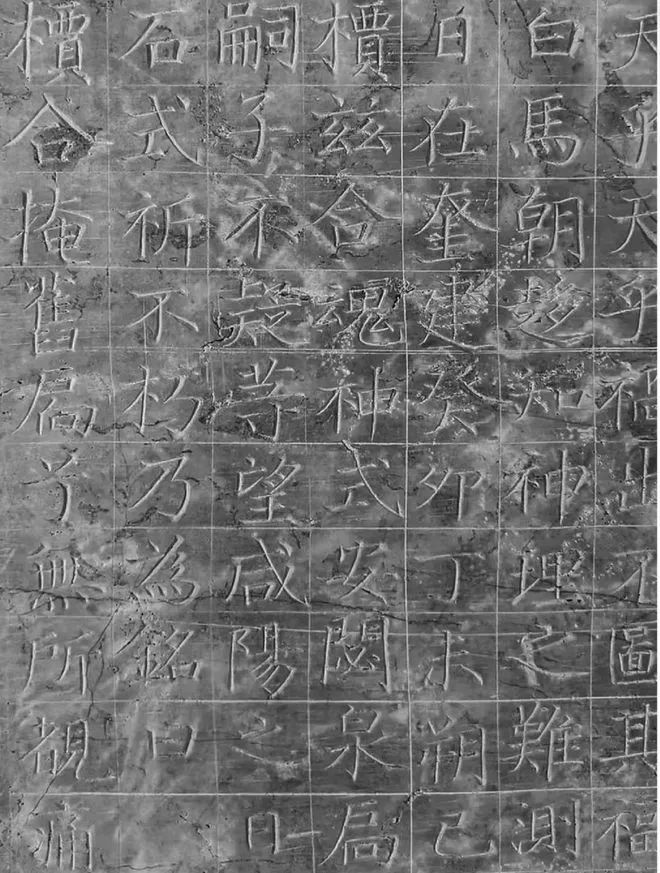 天乎天乎福出不圖其福
白馬朝趍知神理之難測
日在奎建癸卯丁未朔己
櫝兹合魂神式安閟泉扃
嗣子不疑等望咸陽之日
石式祈不朽乃為銘曰
櫝合掩舊扃兮無所覩痛